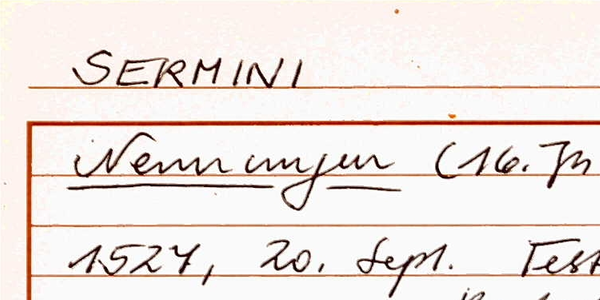 SERMINI
Nennungen (16. Jh
1527, 20. Sept. Test